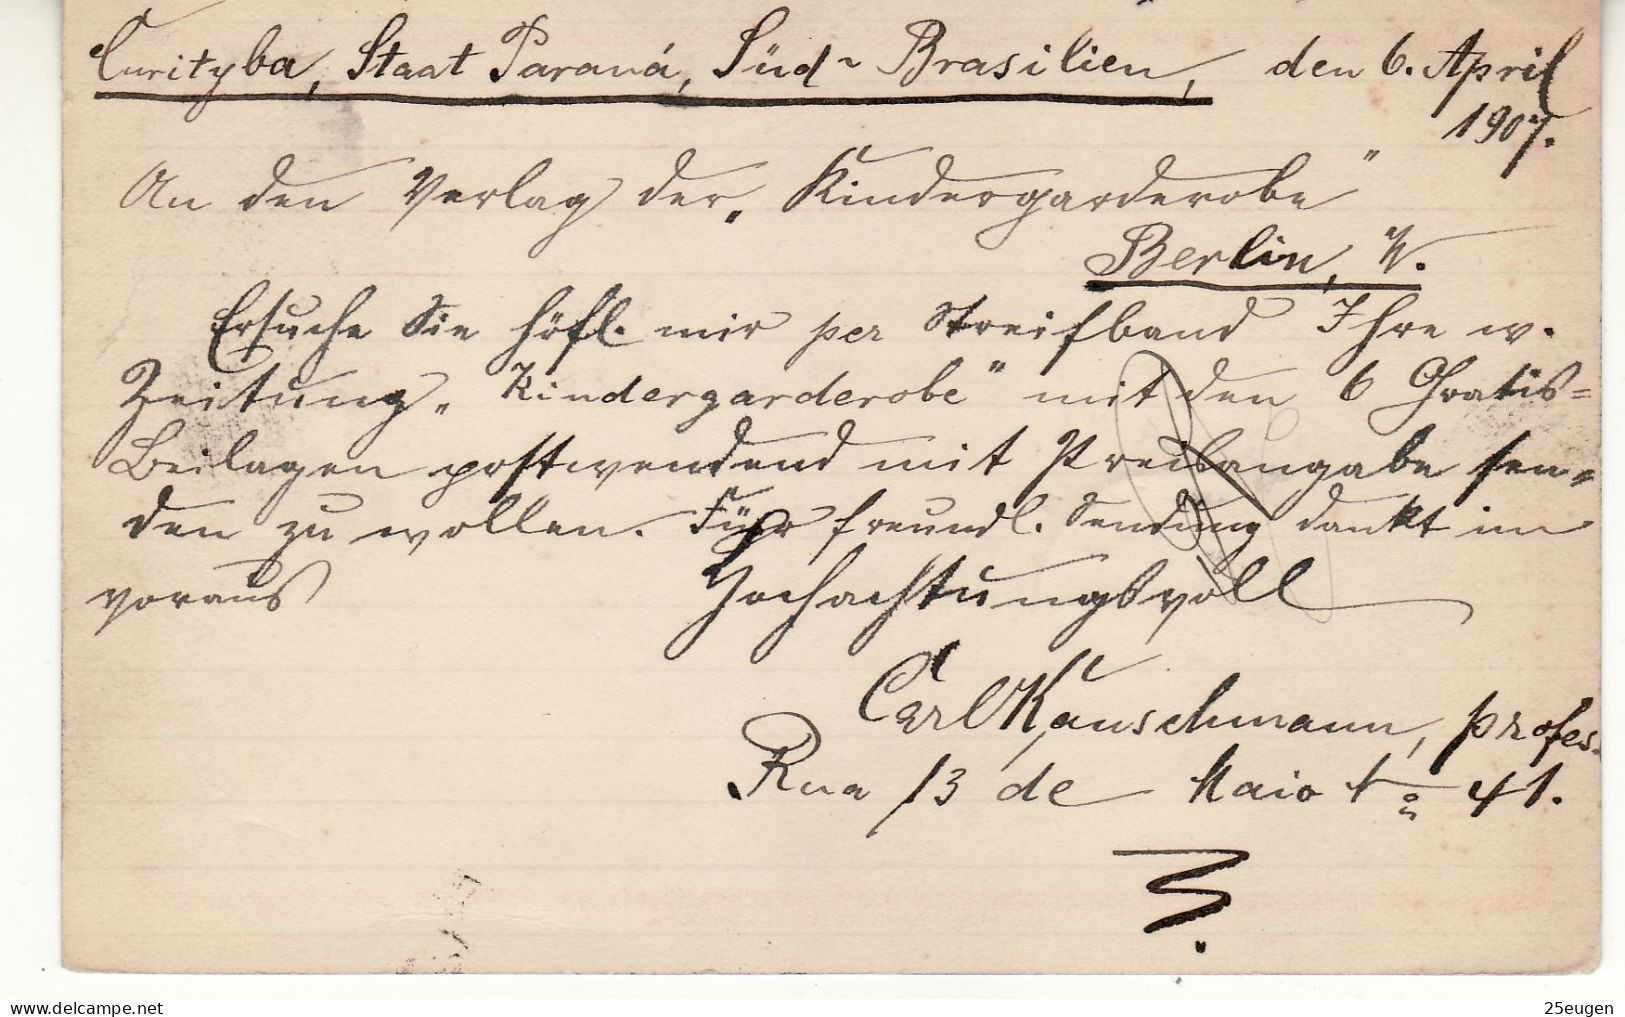 Curityba, Staat Paraná, Süd-Brasilien, den 6. April
1907.
An den Verlag der „Kindergarderobe"
Berlin, W.
Ersuche Sie höfl. mir per Streifband Ihre w.
Zeitung „Kindergarderobe" mit den 6 Gratis=
Beilagen postwendend mit Preisangabe sen=
den zu wollen. Für freundl. Sendung dankt im
voraus Hochachtungsvoll
Carl Kauschmann, profes.
Rua 13 de Maio No 41.
www.delcampe.net
25eugen